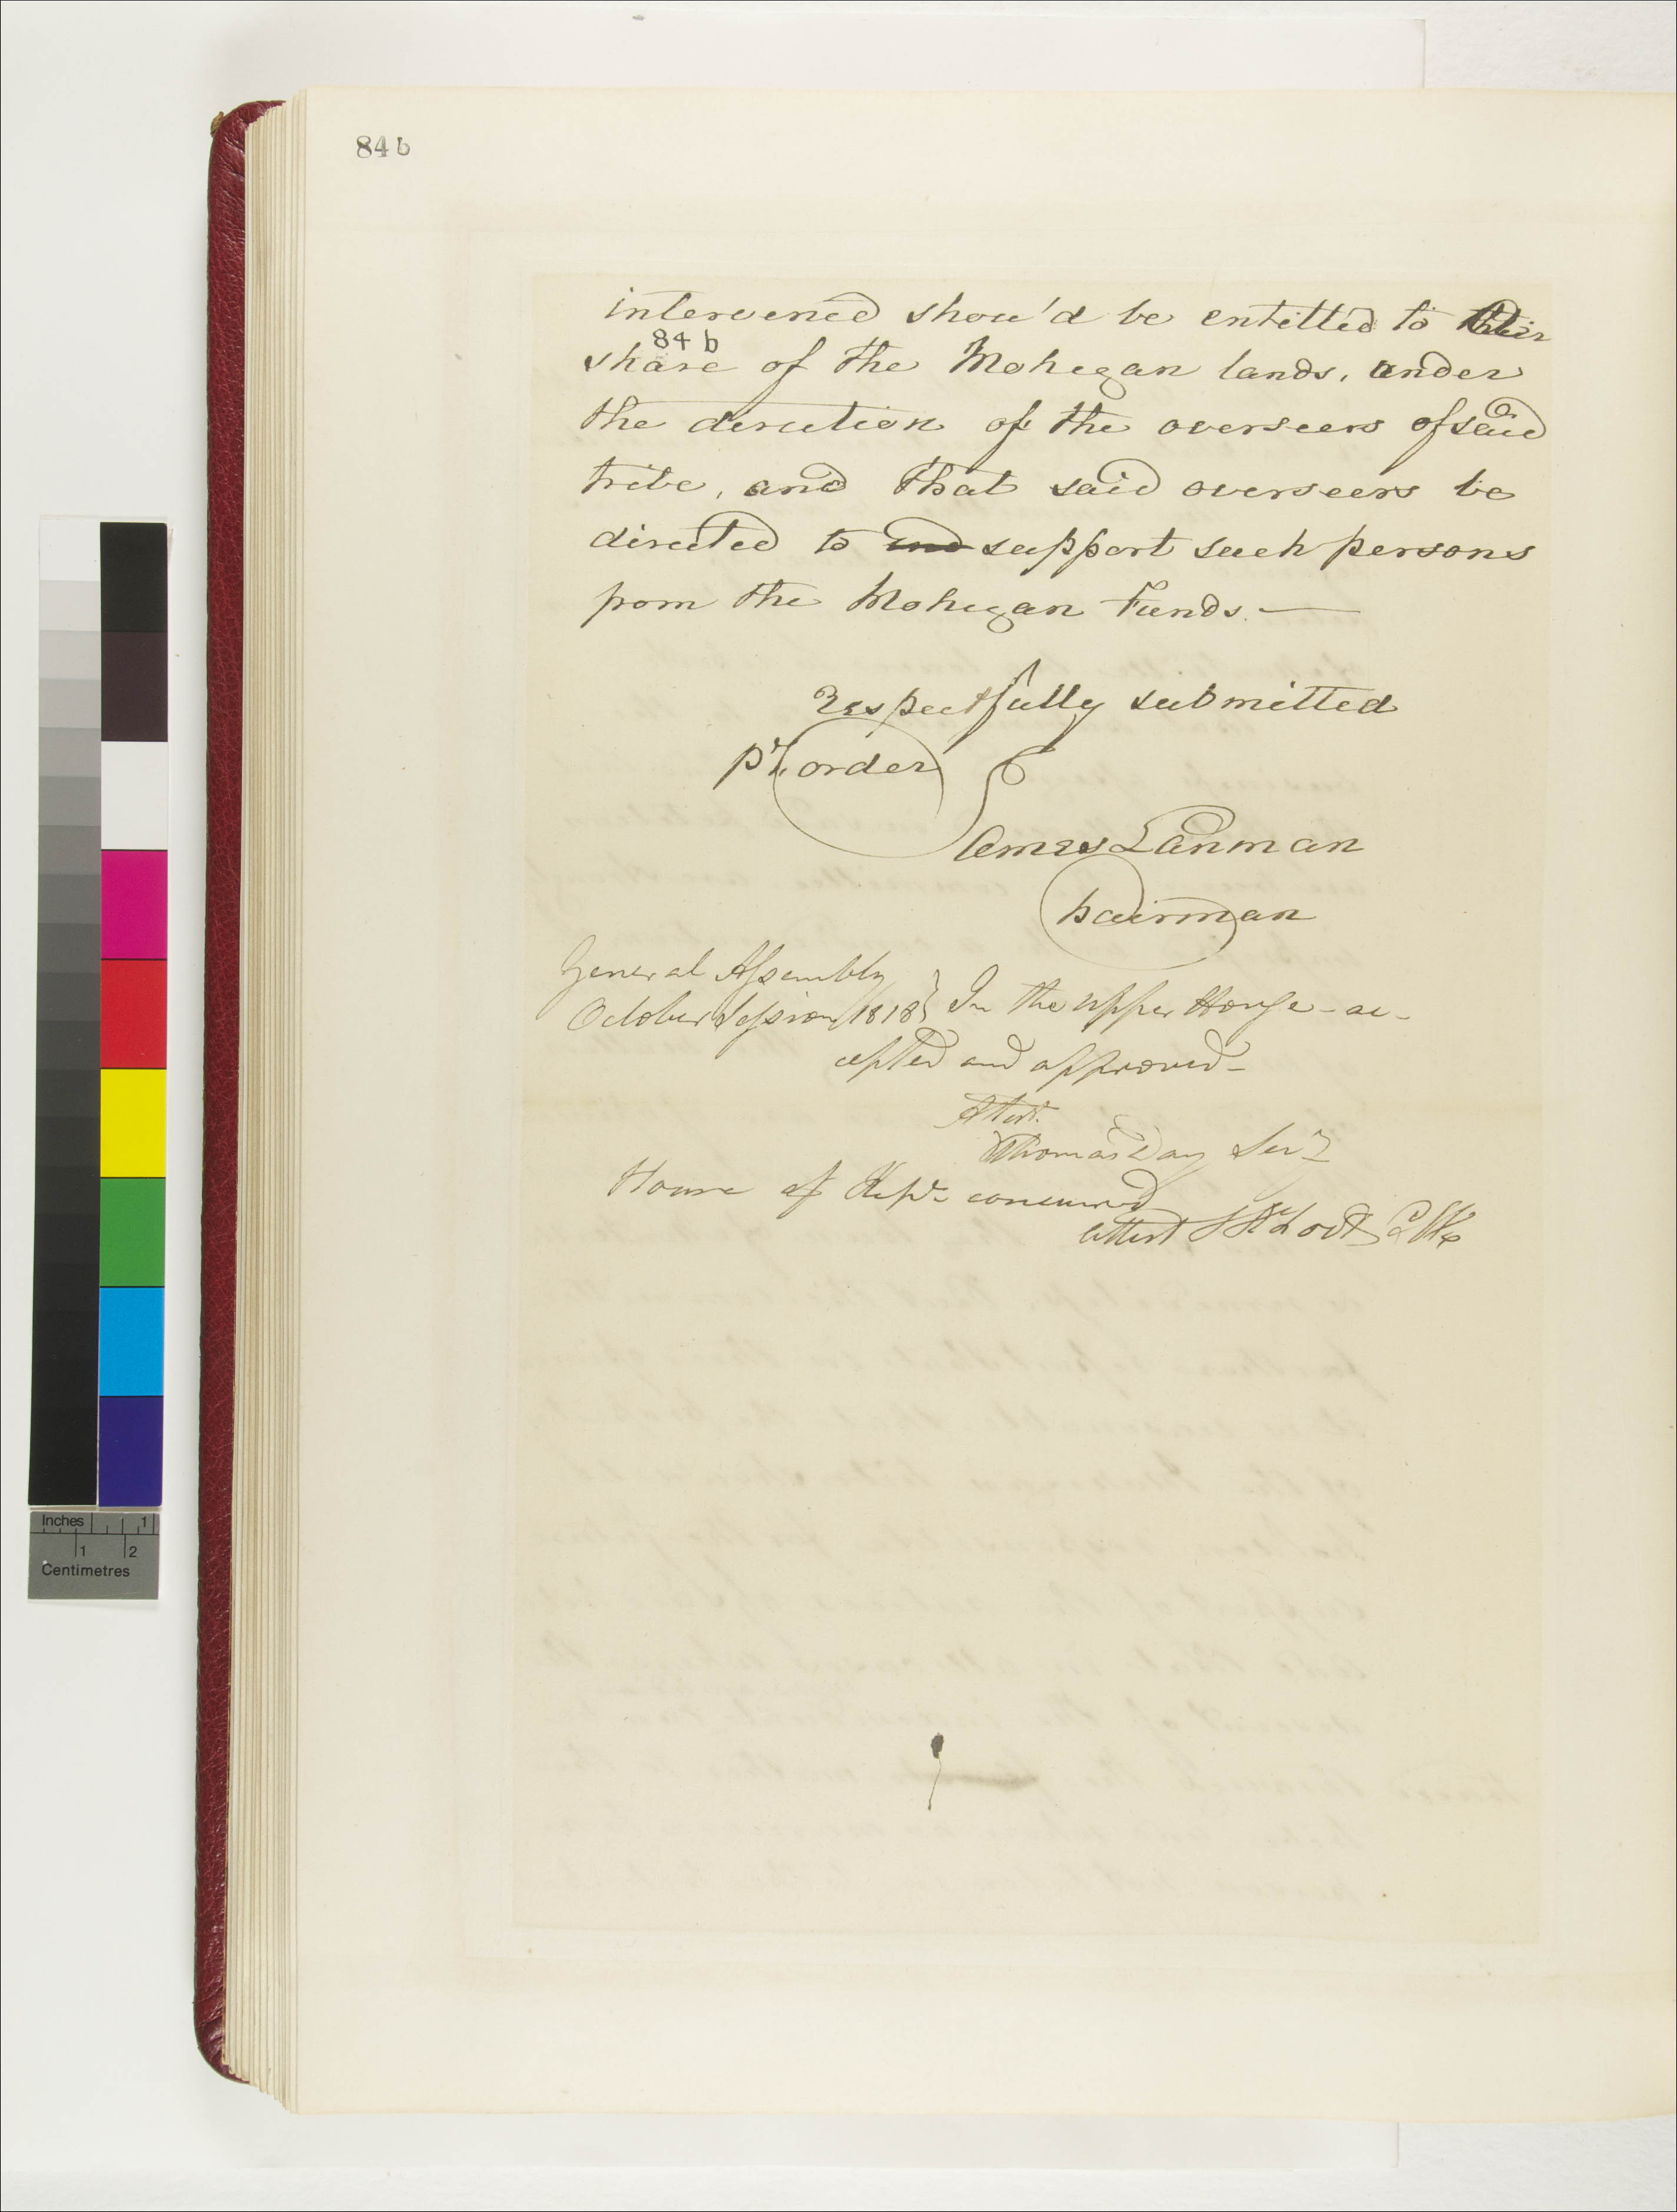 84 b
intervened shou'd be entitled to their
84 b
share of the Mohegan lands, under
the direction of the overseers of said
tribe, and that said overseers be
directed to support such persons
from the Mohegan Funds. —
Respectfully submitted
pr. order
James Lanman
Chairman
General Assembly
October Session 1818 } In the upper House - ac-
cepted and approved -
Attest.
Thomas Day Secy
House of Reps concurred
attest Clk
Inches 1
1 2
Centimetres